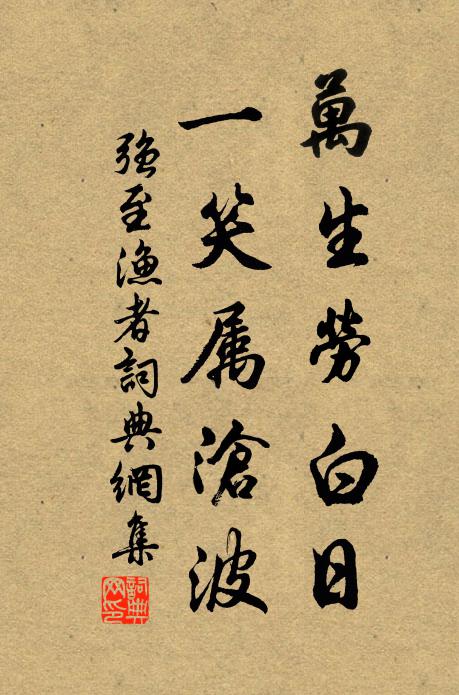 萬生勞白日
一笑属滄波
強至漁者詞典網集
詞典
网印